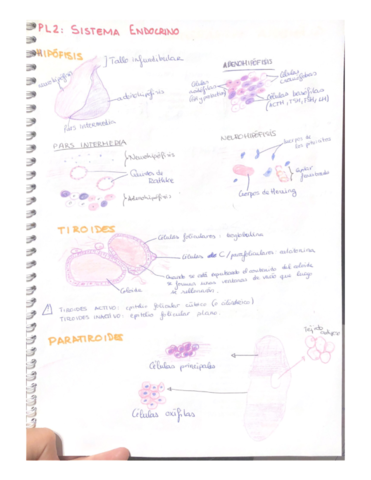 PL2: SISTEMA ENDOCRINO
HIPÓFISIS
Tallo infundibular
Neurohipófisis
adenohipófisis
Pars intermedia
ADENOHIPÓFISIS
Células
acidófilas
Células
Células basófilas
(ACTH, TSH, FSH, LH)
PARS INTERMEDIA
Neurohipófisis
Quistes de
Rathke
Adenohipófisis
NEUROHIPÓFISIS
Cuerpos de Herring
TIROIDES
Células foliculares: tiroglobulina
Células C / parafoliculares: calcitonina
Cuando se está el contenido del coloide
se forman unas de que luego
Coloide
TIROIDES ACTIVO: epitelio folicular cúbico (o cilíndrico)
TIROIDES INACTIVO: epitelio folicular plano.
PARATIROIDES
Células principales
Tejido
Células oxífilas